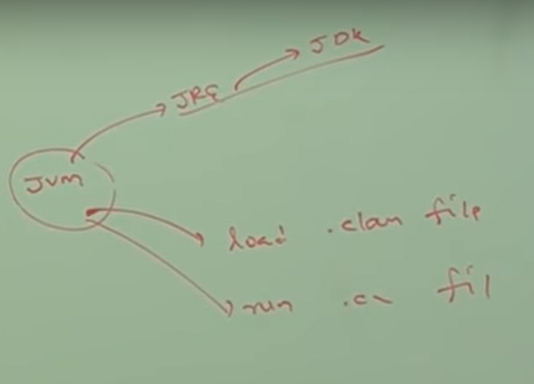 JDK
JRE
JVM
load .class file
run .cl fil